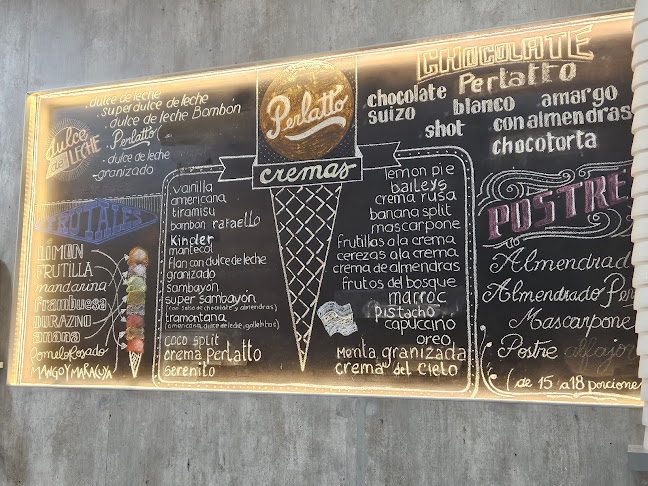 dulce de leche
super dulce de leche
dulce de leche Bombon
Perlatto
dulce de leche
granizado
dulce
de
LECHE
FRUTALES
LIMON
FRUTILLA
mandarina
frambuesa
DURAZNO
anana
Pomelo Rosado
MANGO Y MARACUYA
Perlatto
cremas
vainilla
americana
tiramisu
bombon rafaello
Kinder
mantecol
flan con dulce de leche
granizado
sambayón
super sambayón
tramontana
(americana, dulce de leche, galletitas)
coco split
crema Perlatto
serenito
lemon pie
baileys
crema rusa
banana split
mascarpone
frutillas a la crema
cerezas a la crema
crema de almendras
frutos del bosque
marroc
PISTACHO
capuccino
oreo
Menta granizada
crema del cielo
CHOCOLATE
Perlatto
chocolate blanco amargo
suizo shot con almendras
chocotorta
POSTRE
Almendrad
Almendrado Per
Mascarpone
Postre alfajor
(de 15 a 18 porciones